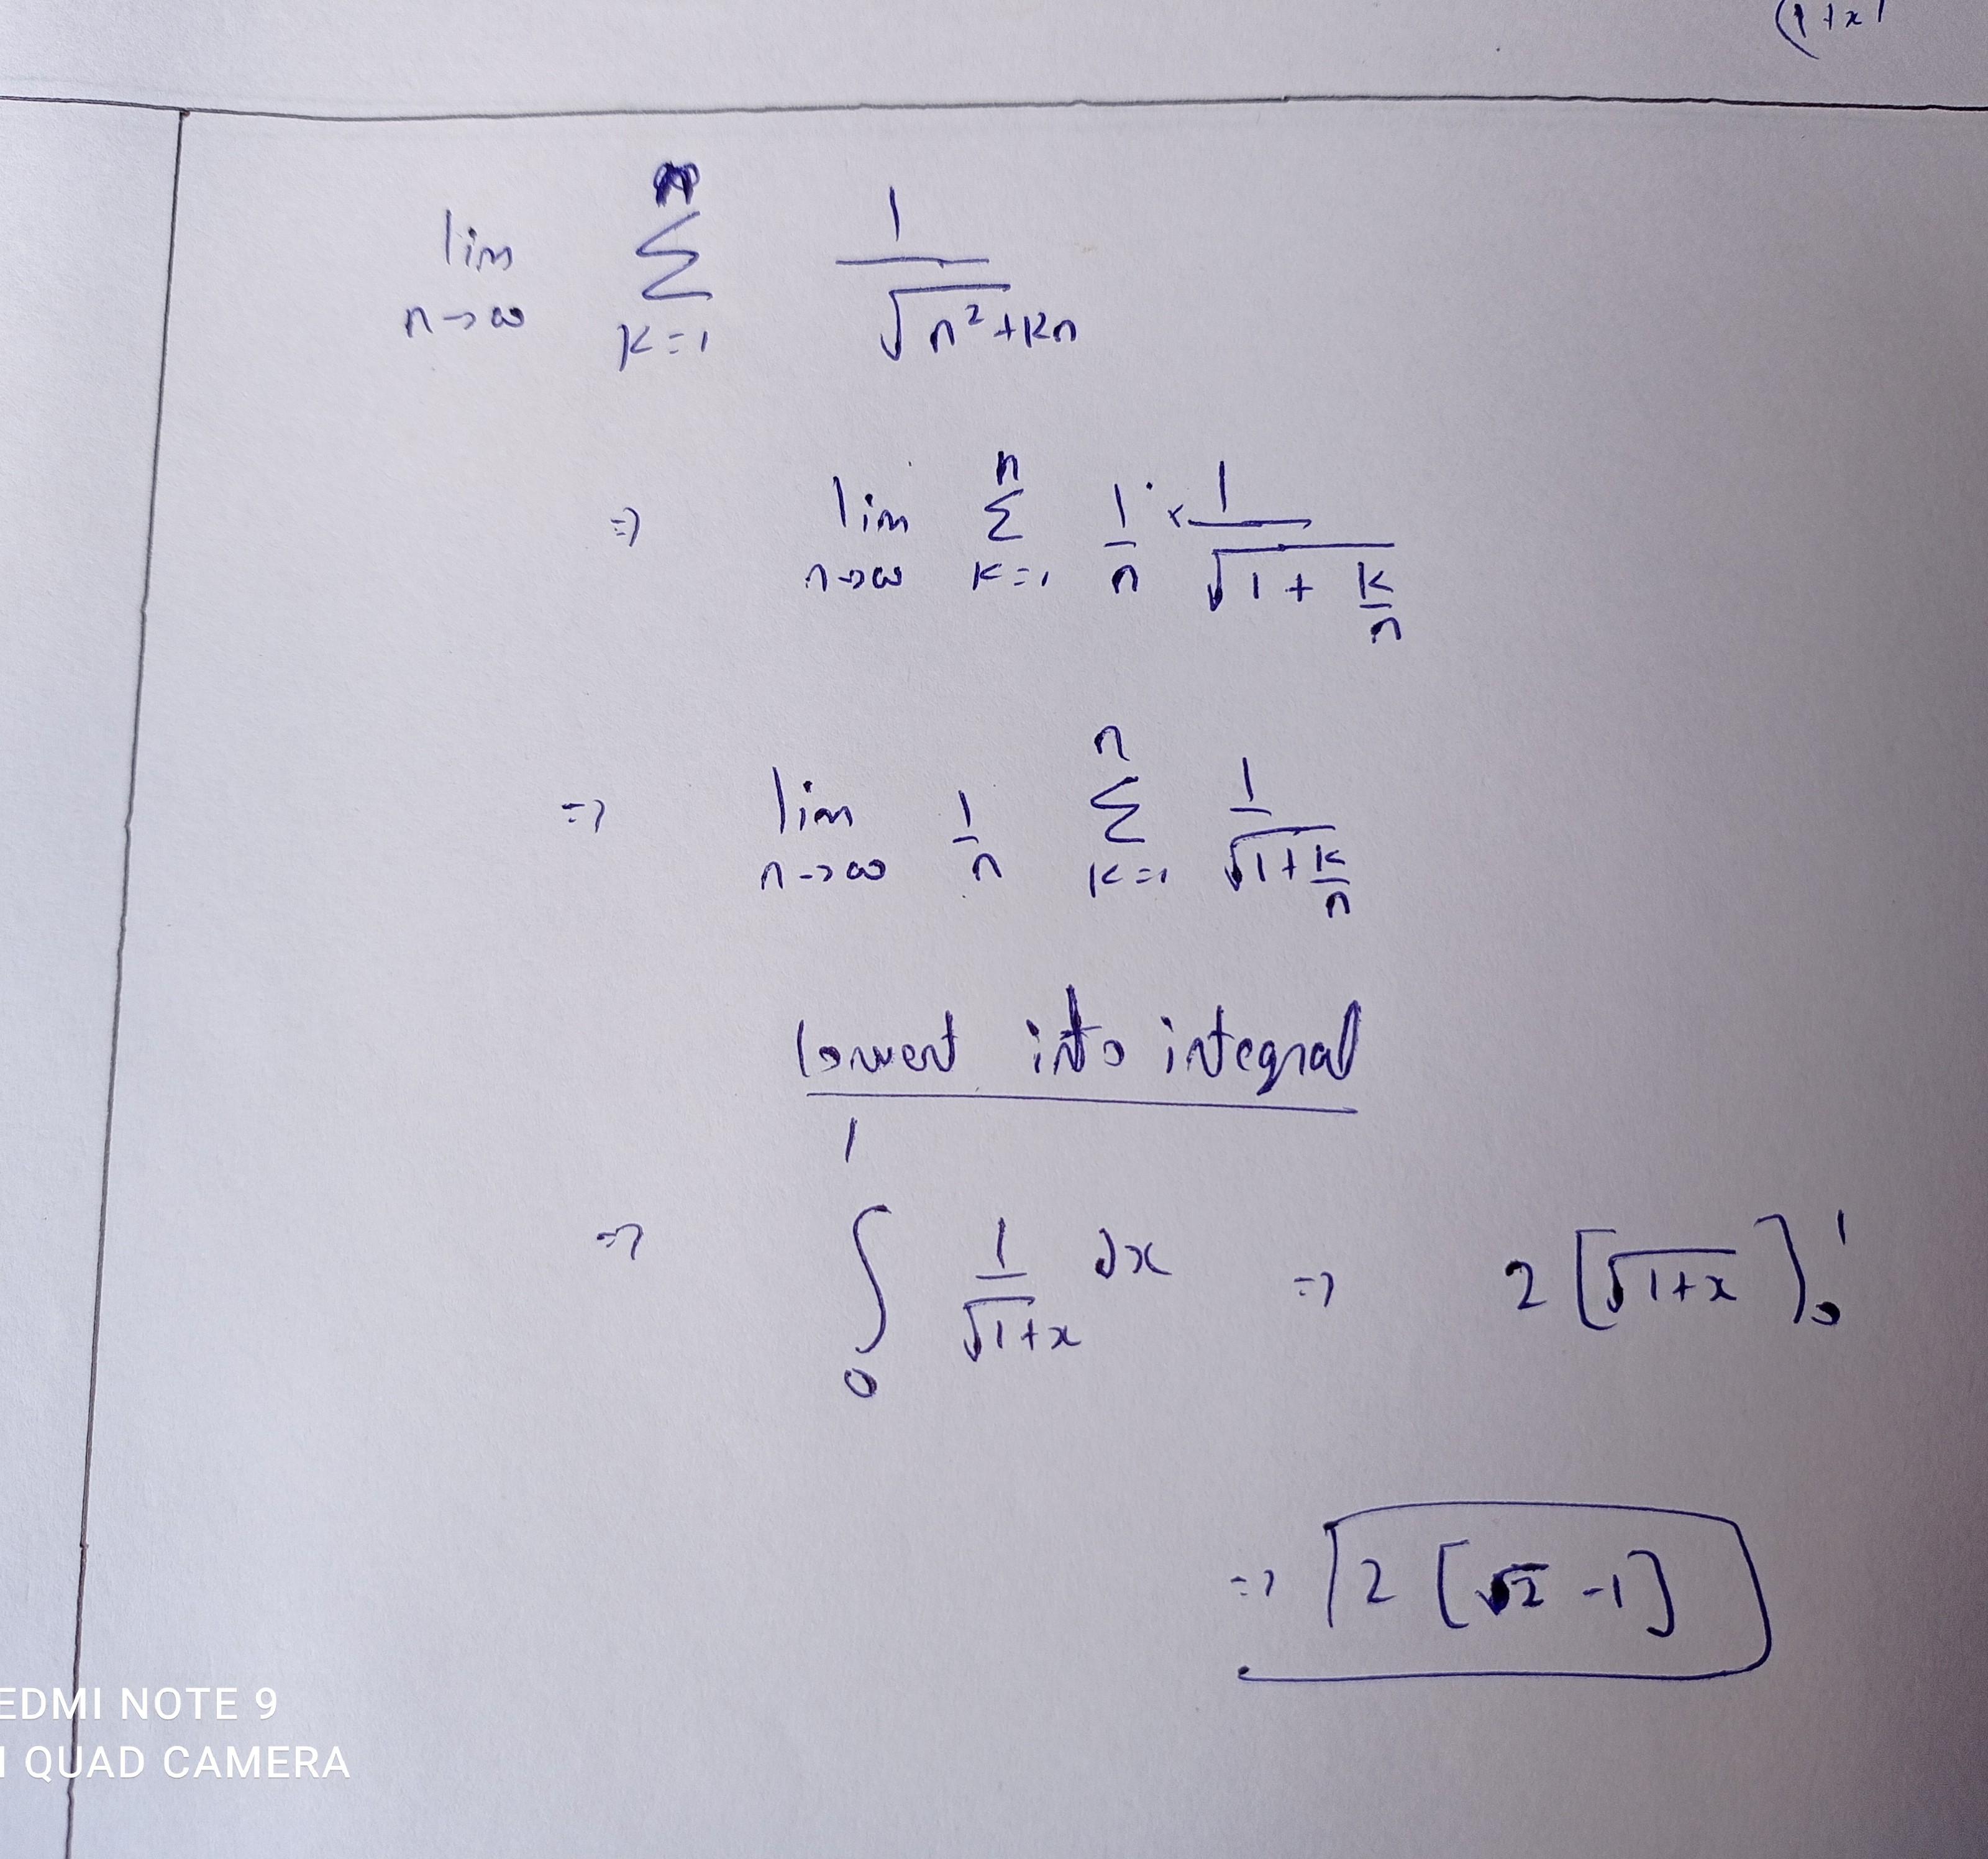 (1+x)
lim n→∞ n Σ k=1 1/√n²+kn
⇒ lim n→∞ n Σ k=1 1/n × 1/√1+k/n
⇒ lim n→∞ 1/n n Σ k=1 1/√1+k/n
Convert into integral
⇒ 1 ∫ 0 1/√1+x dx ⇒ 2[√1+x]₀¹
⇒ 2[√2-1]
EDMI NOTE 9
I QUAD CAMERA